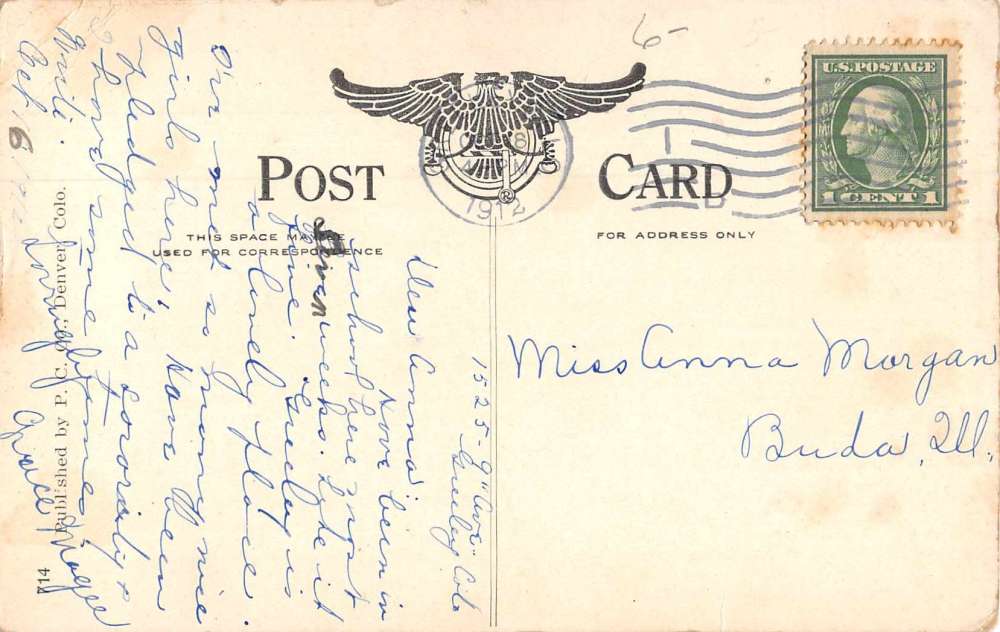 POST CARD
THIS SPACE MAY BE
USED FOR CORRESPONDENCE
FOR ADDRESS ONLY
U.S. POSTAGE
1 CENT 1
1912
6-
1525-9" Ave-
Greeley Colo
Dear Anna
Have been in
school here most
seven weeks. Like it
fine. Greeley is
a lovely place.
I've met so many nice
girls here, have been
pledged to a sorority &
have some times
Write.
Lovingly
Grace
Oct. 16/12
Miss Anna Morgan
Buda, Ill.
Published by P. C. Co., Denver, Colo.
714